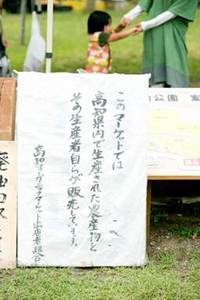 このマーケットでは
高知県内で生産された農産物を
その生産者自らが販売しています。
高知オーガニックマーケット出店者組合
公園
廃油回収